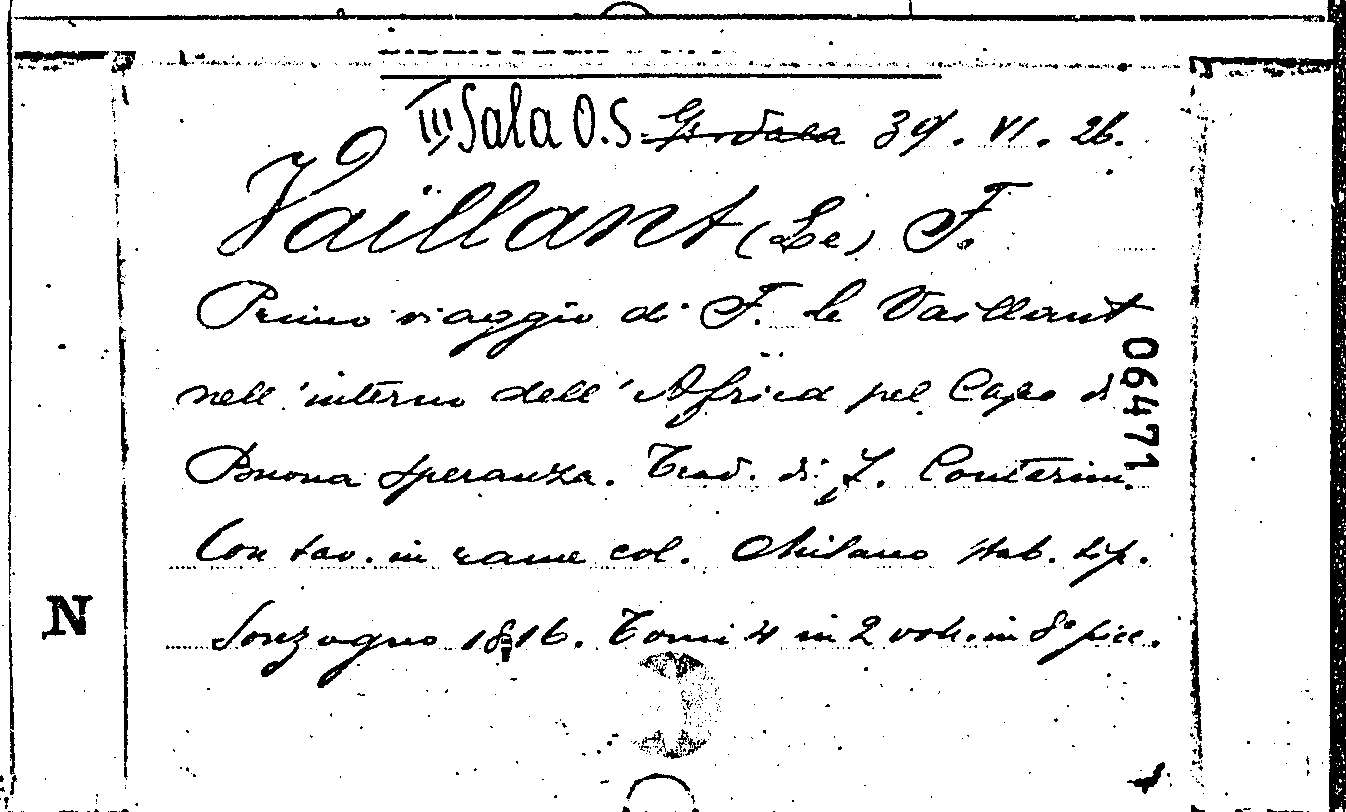 III Sala O.S. 39. VI. 26.
Vaillant (Le) F.
Primo viaggio di F. le Vaillant
nell'interno dell'Africa pel Capo di
Buona Speranza. Trad. di F. Contarini.
Con tav. in rame col. Milano Stab. tip.
Sonzogno 1816. Tomi 4 in 2 vol. in 8° picc.
06471
N